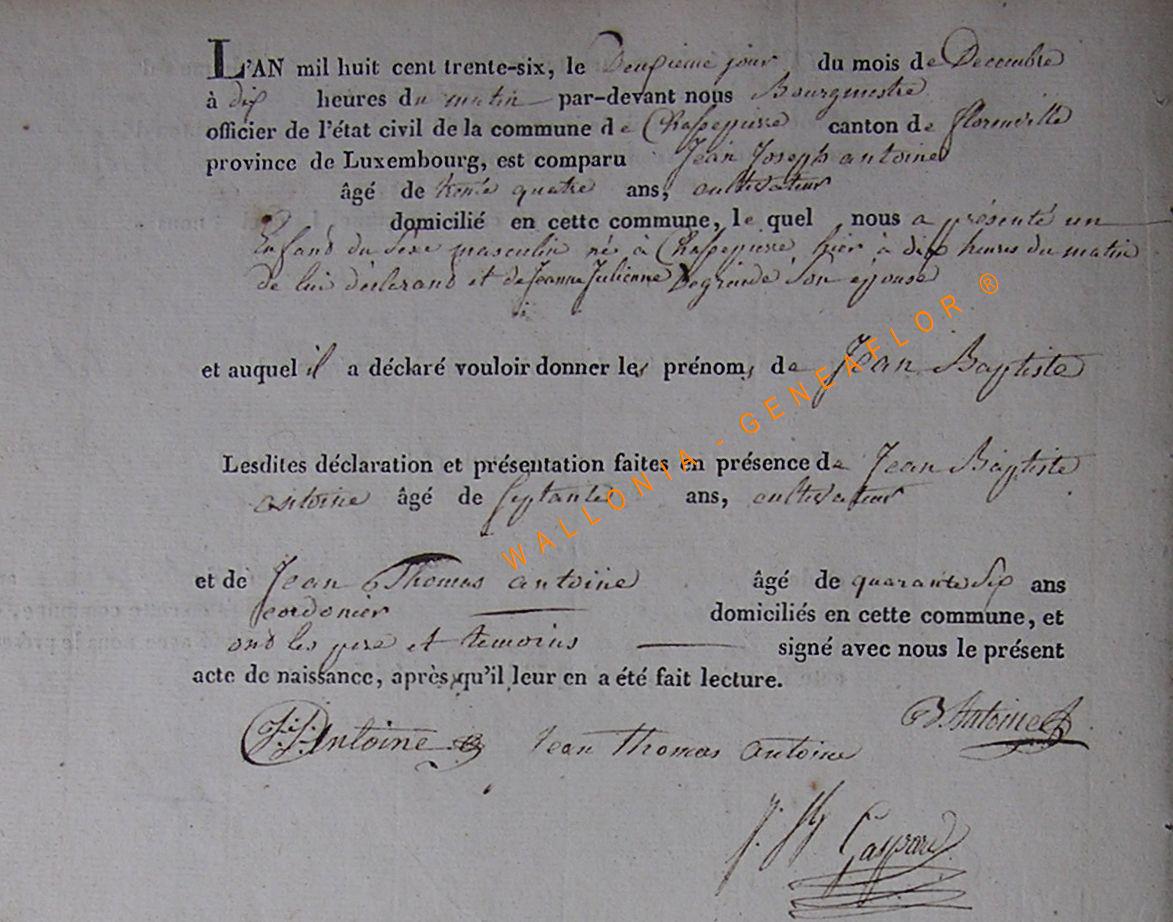 L'AN mil huit cent trente-six, le Deuxieme jour du mois de Decembre
à dix heures du matin par-devant nous Bourgmestre
officier de l'état civil de la commune de Chassepierre canton de florenville
province de Luxembourg, est comparu Jean Joseph antoine
âgé de trente quatre ans, cultivateur
domicilié en cette commune, le quel nous a présenté un
Enfand du Sexe masculin né à Chassepierre hier à dix heures du matin
de lui déclarand et de Jeanne Julienne Degrande Son epouse
et auquel il a déclaré vouloir donner les prénoms de Jean Baptiste
Lesdites déclaration et présentation faites en présence de Jean Baptiste
antoine âgé de septante ans, cultivateur
et de Jean Thomas antoine âgé de quarante six ans
cordonier domiciliés en cette commune, et
ond les pere et temoins signé avec nous le présent
acte de naissance, après qu'il leur en a été fait lecture.
J. J. Antoine Jean thomas antoine B. Antoine
Gaspard
WALLONIA - GENEAFLOR ®